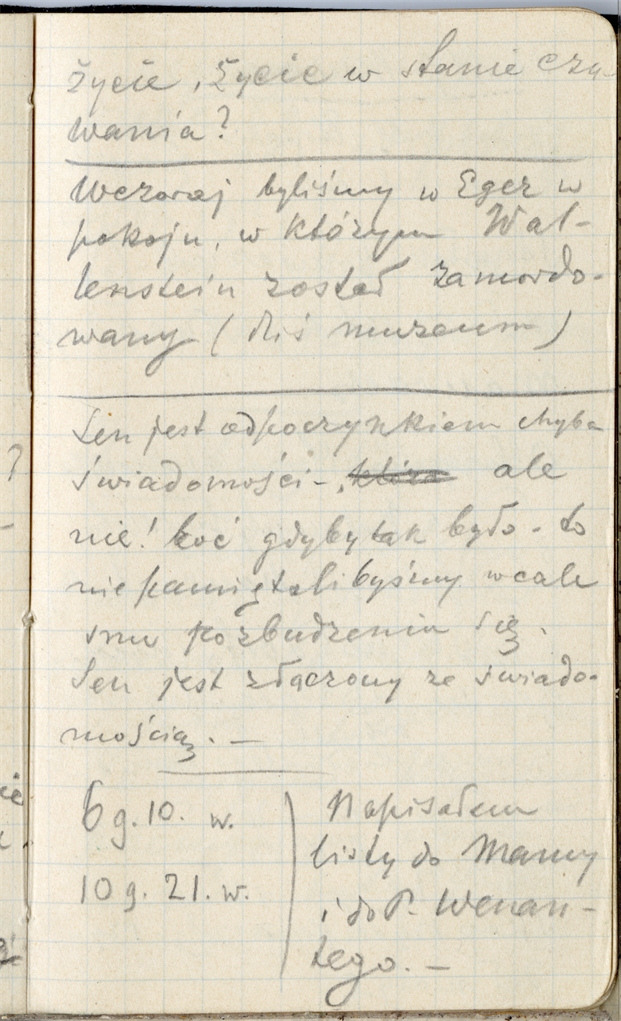 życie, życie w stanie czu
wania?
Wczoraj byliśmy w Eger w
pokoju, w którym Wal-
lenstein został zamordo-
wany (dziś muzeum)
Sen jest odpoczynkiem chyba
świadomości - która ale
nie! boć gdyby tak było - to
nie pamiętalibyśmy wcale
snu po zbudzeniu się.
Sen jest złączony ze świado-
mością. -
6 g. 10. w.
10 g. 21. w.
Napisałem
listy do Mamy
i do P. Wenan-
tego. -